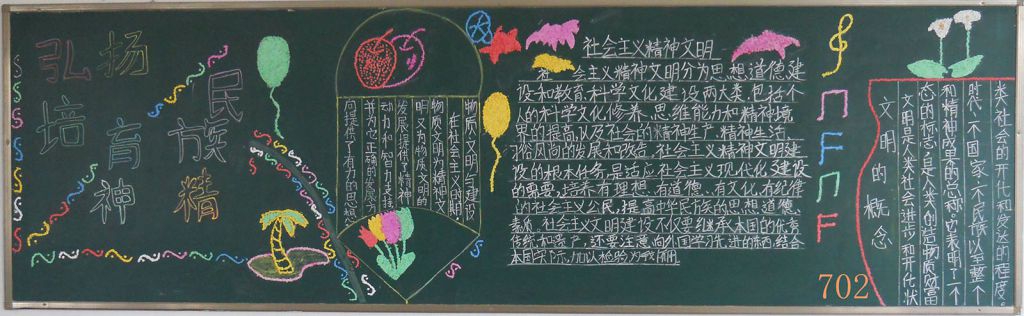 弘扬
培育
民族精神
物质文明与建设
在社会主义时期
物质文明为精神文
明义为物质文明的
发展提供了精神
动力和智力支持
并为它正确的发展方
向提供了有力的思想
社会主义精神文明
社会主义精神文明分为思想道德建
设和教育科学文化建设两大类,包括个
人的科学文化修养、思维能力和精神境
界的提高,以及社会的精神生产,精神生活,
习俗风尚的发展和改造。社会主义精神文明建
设的根本任务,是适应社会主义现代化建设
的需要,培养有理想、有道德、有文化、有纪律
的社会主义公民,提高中华民族的思想道德、
素质。社会主义文明建设不仅要继承本国的优秀
传统和遗产,还要注意向外国学习先进的东西,结合
本国实际,加以检验为我所用。
文明的概念
文明是人类社会进步和开化状
态的标志,是人类创造物质财富
和精神成果的总称。它表明了一个
时代、一个国家、一个民族以至整个
类社会的开化和发达的程度。
702